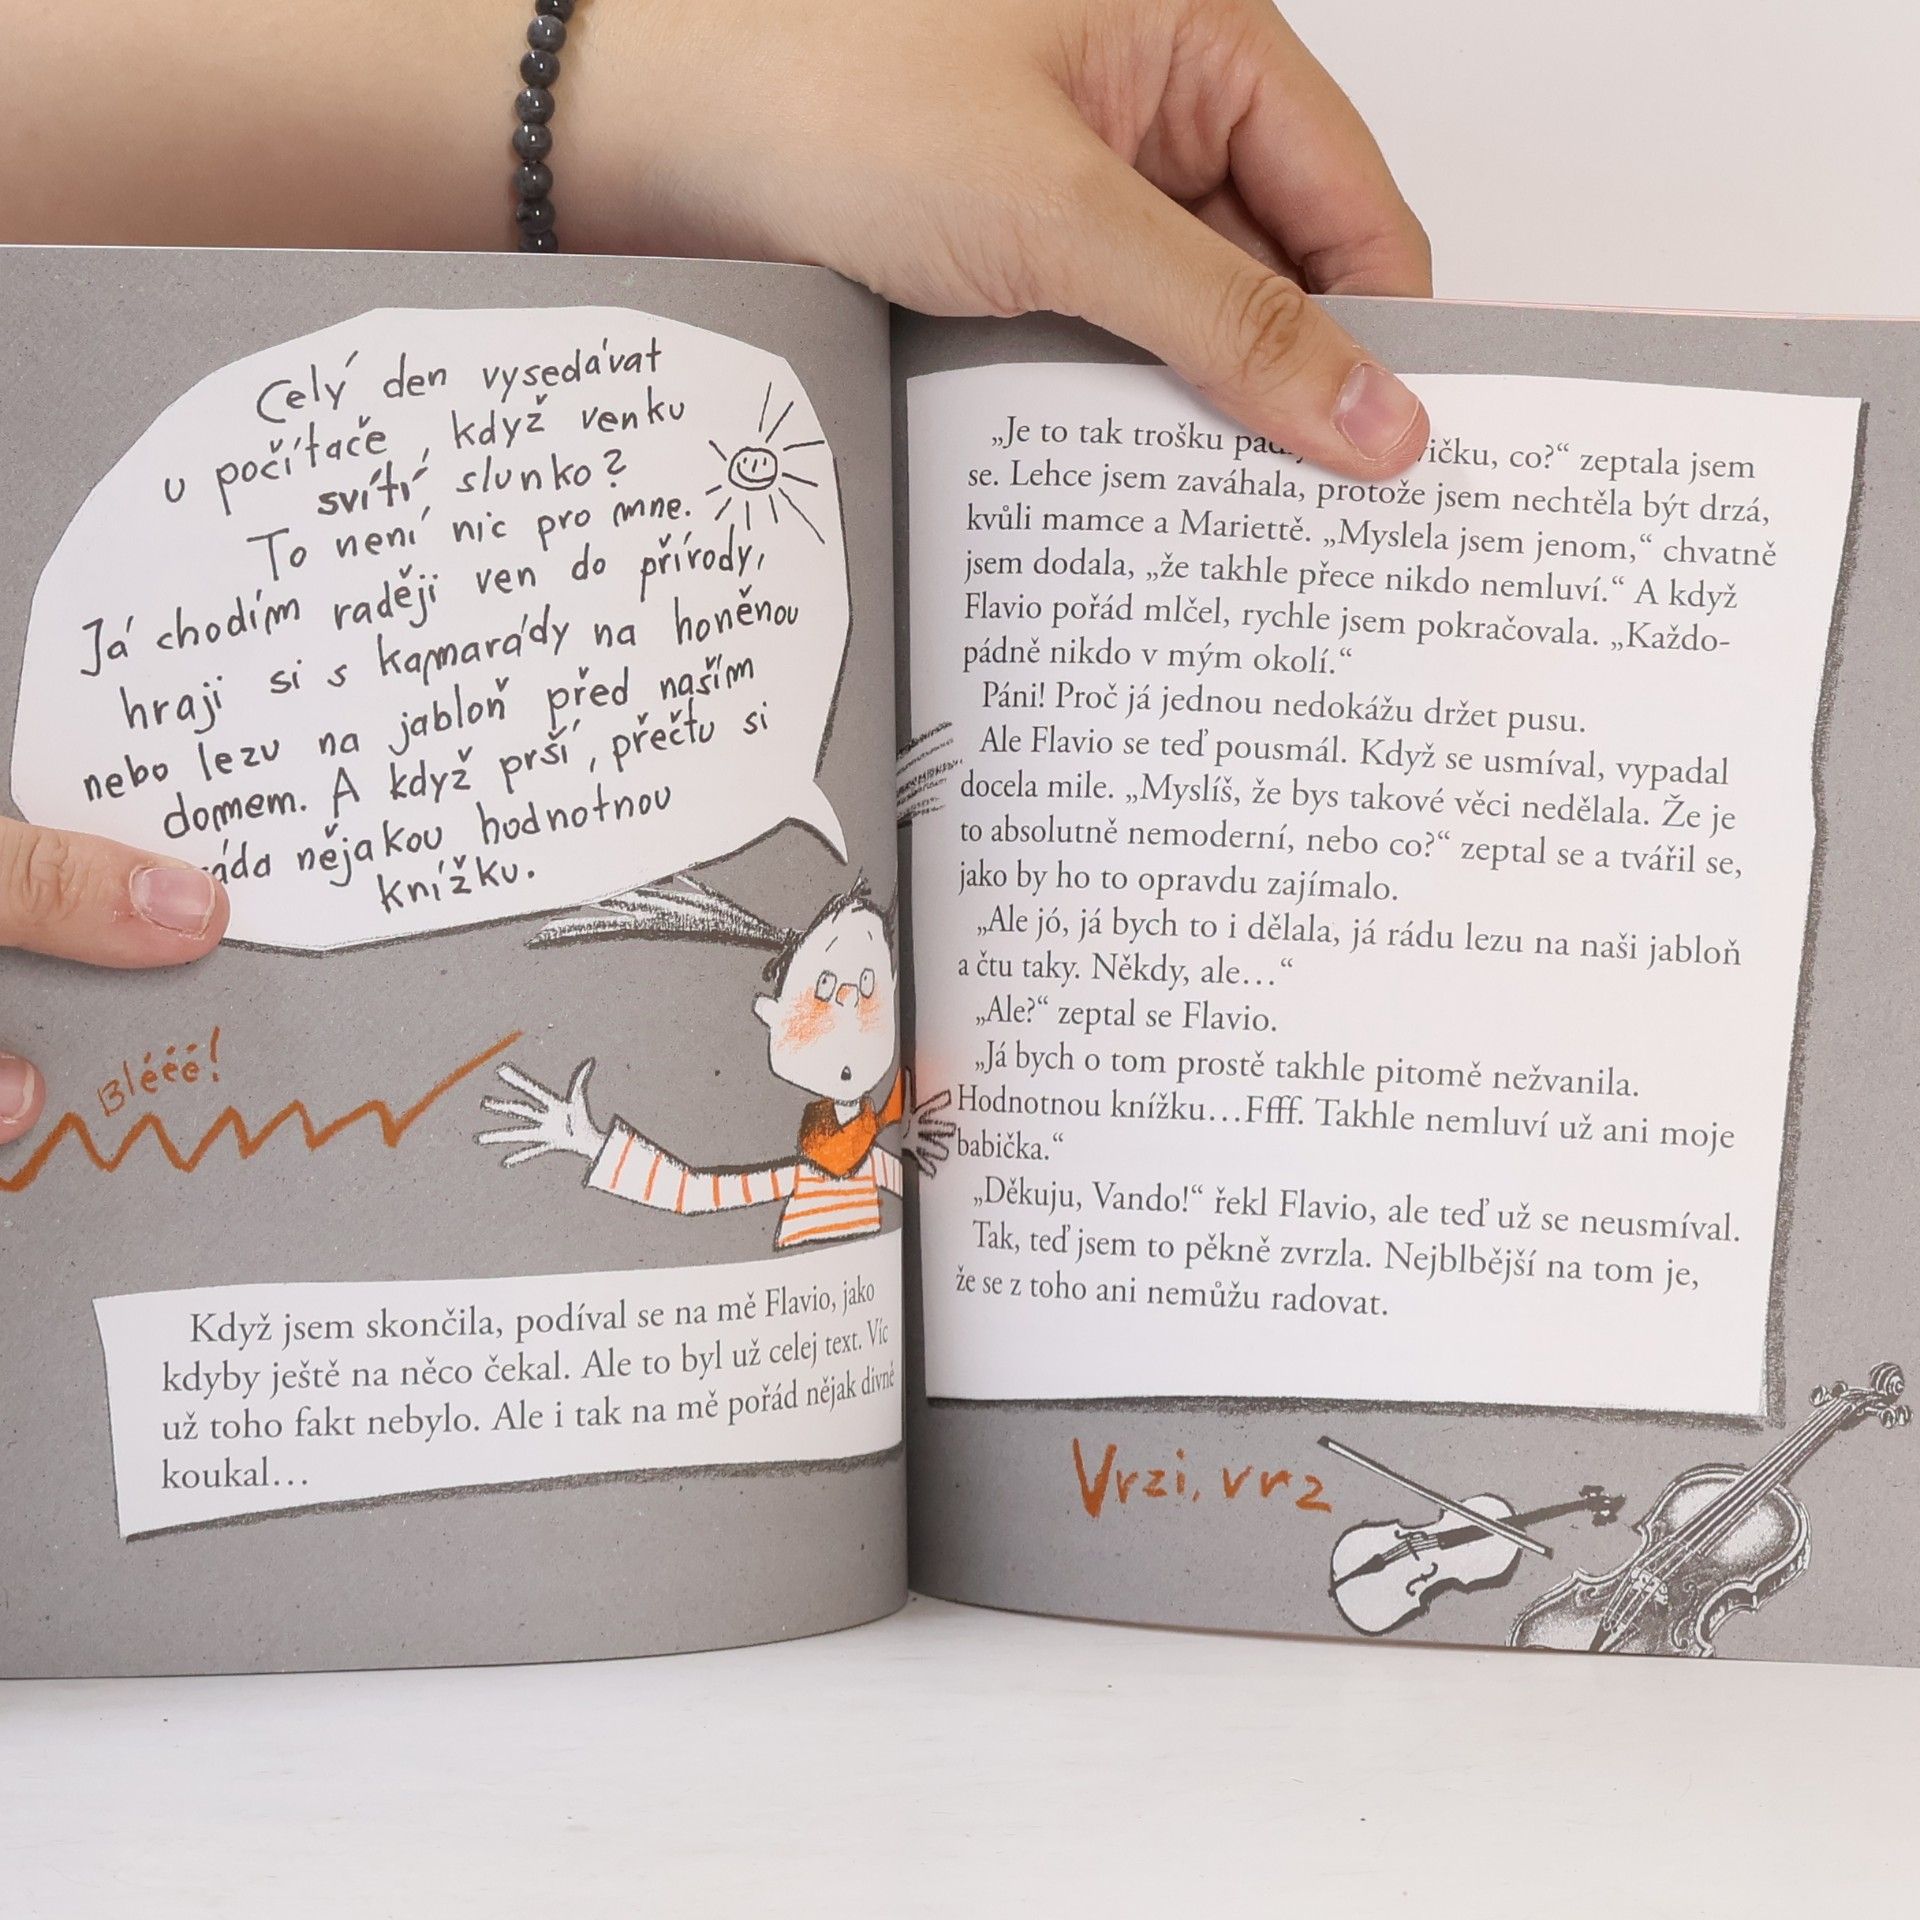 Celý den vysedávat
u počítače, když venku
svítí slunko?
To není nic pro mne.
Já chodím raději ven do přírody,
hraji si s kamarády na honěnou
nebo lezu na jabloň před naším
domem. A když prší, přečtu si
ráda nějakou hodnotnou
knížku.
Blééé!
Když jsem skončila, podíval se na mě Flavio, jako
kdyby ještě na něco čekal. Ale to byl už celej text. Víc
už toho fakt nebylo. Ale i tak na mě pořád nějak divně
koukal…
„Je to tak trošku co?“ zeptala jsem
se. Lehce jsem zaváhala, protože jsem nechtěla být drzá,
kvůli mamce a Mariettě. „Myslela jsem jenom,“ chvatně
jsem dodala, „že takhle přece nikdo nemluví.“ A když
Flavio pořád mlčel, rychle jsem pokračovala. „Každo-
pádně nikdo v mým okolí.“
Páni! Proč já jednou nedokážu držet pusu.
Ale Flavio se teď pousmál. Když se usmíval, vypadal
docela mile. „Myslíš, že bys takové věci nedělala. Že je
to absolutně nemoderní, nebo co?“ zeptal se a tvářil se,
jako by ho to opravdu zajímalo.
„Ale jó, já bych to i dělala, já rádu lezu na naši jabloň
a čtu taky. Někdy, ale…“
„Ale?“ zeptal se Flavio.
„Já bych o tom prostě takhle pitomě nežvanila.
Hodnotnou knížku…Ffff. Takhle nemluví už ani moje
babička.“
„Děkuju, Vando!“ řekl Flavio, ale teď už se neusmíval.
Tak, teď jsem to pěkně zvrzla. Nejblbější na tom je,
že se z toho ani nemůžu radovat.
Vrzi, vrz